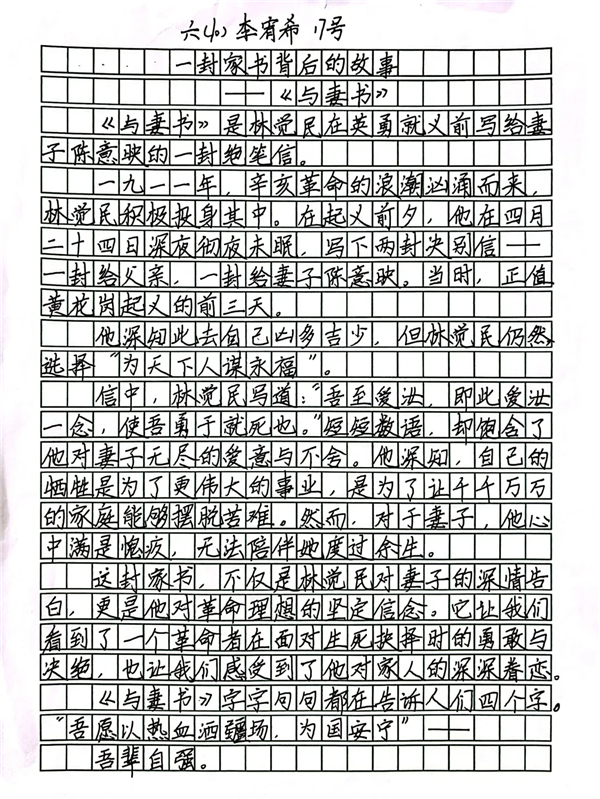 六(10) 李宥希 17号
一封家书背后的故事
——《与妻书》
《与妻书》是林觉民在英勇就义前写给妻
子陈意映的一封绝笔信。
一九一一年，辛亥革命的浪潮汹涌而来，
林觉民积极投身其中。在起义前夕，他在四月
二十四日深夜彻夜未眠，写下两封决别信——
一封给父亲，一封给妻子陈意映。当时，正值
黄花岗起义的前三天。
他深知此去自己凶多吉少，但林觉民仍然
选择“为天下人谋永福”。
信中，林觉民写道：“吾至爱汝，即此爱汝
一念，使吾勇于就死也。”短短数语，却饱含了
他对妻子无尽的爱意与不舍。他深知，自己的
牺牲是为了更伟大的事业，是为了让千千万万
的家庭能够摆脱苦难。然而，对于妻子，他心
中满是愧疚，无法陪伴她度过余生。
这封家书，不仅是林觉民对妻子的深情告
白，更是他对革命理想的坚定信念。它让我们
看到了一个革命者在面对生死抉择时的勇敢与
决绝，也让我们感受到了他对家人的深深眷恋。
《与妻书》字字句句都在告诉人们四个字。
“吾愿以热血洒疆场，为国安宁”——
吾辈自强。